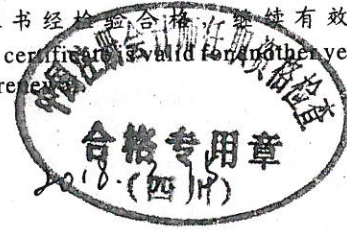 书经检验合格，继续有效
certificate is valid for another ye
renewal
中国注册会计师任职资格检查
合格专用章
2018.
(四川)